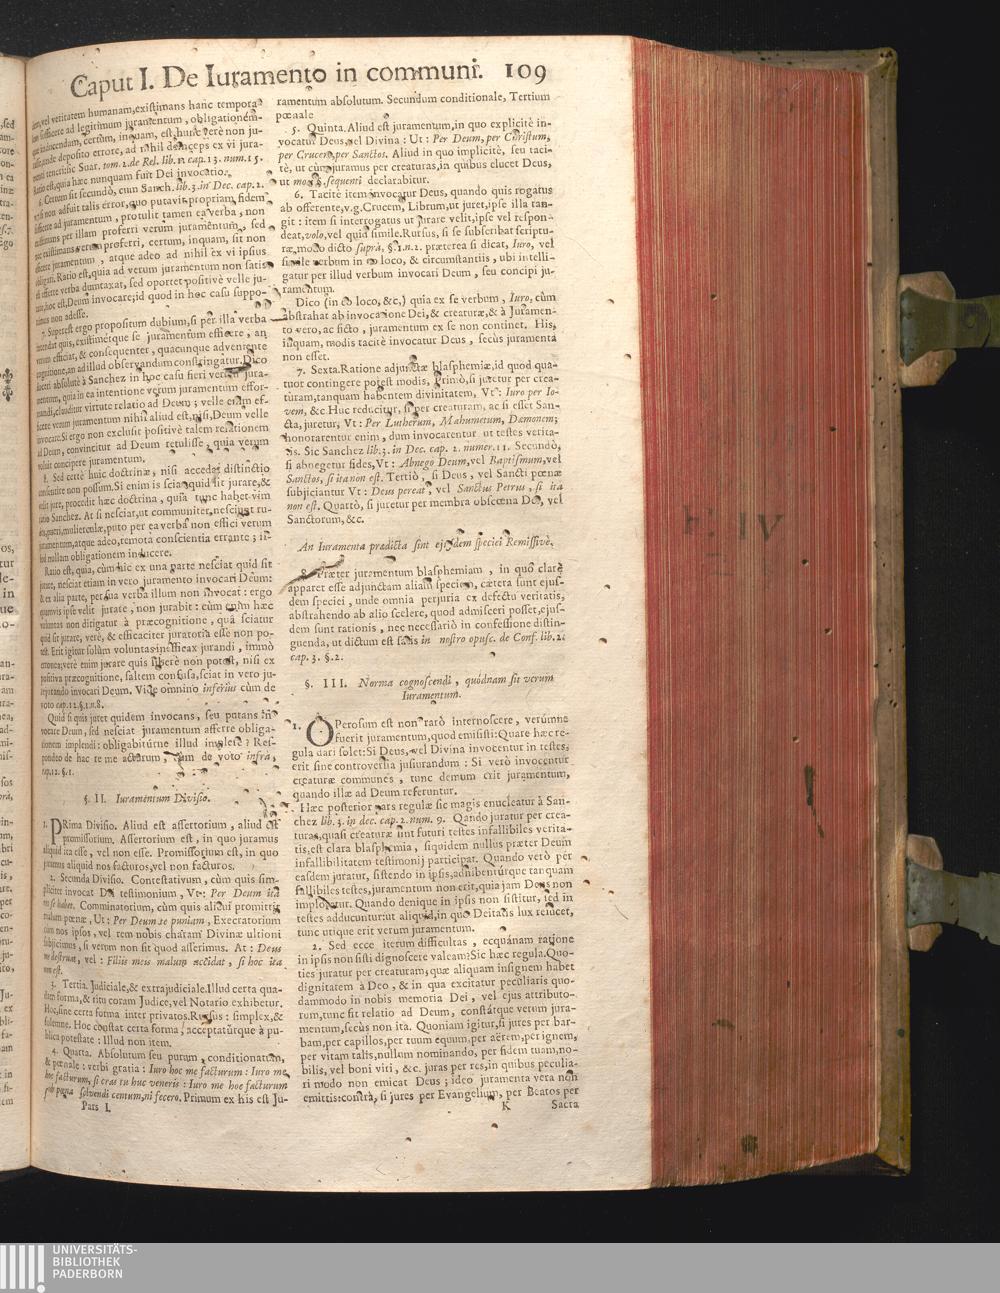 Caput I. De Iuramento in communi. 109
vel veritatem humanam, existimans hanc
sufficere ad legitimum juramentum,
inducendam, certùm, inquam, est, hunc verè non ju-
deposito errore, ad nihil deinceps ex vi jura-
menti teneri: sic Suar. tom. 2. de Rel. lib. 1. cap. 13. num. 15.
Ratio est, quia hæc nunquam fuit Dei invocatio.
6. Certum sit secundò, cum Sanch. lib. 3. in Dec. cap. 2.
non adfuit talis error, quo putavit propriam fidem
sufficere ad juramentum, protulit tamen ea verba, non
existimans per illam proferri verum juramentum, sed
existimans verum proferri, certum, inquam, sit non
juramentum, atque adeo ad nihil ex vi ipsius
obligari. Ratio est, quia ad verum juramentum non satis
est efferre verba dumtaxat, sed oportet positivè velle ju-
rare, hoc est, Deum invocare; id quod in hoc casu suppo-
nimus non adesse.
7. Superest ergo propositum dubium, si per illa verba
intendat quis, existimetque se juramentum efficere, an
verum efficiat, & consequenter, quacunque advenente
cognitione, an ad illud observandum constringatur. Dico
fieri absolutè à Sanchez in hoc casu fieri verum jura-
mentum, quia in ea intentione verum juramentum effor-
mandi, clauditur virtute relatio ad Deum; velle enim ef-
ficere verum juramentum nihil aliud est, nisi, Deum velle
invocare. Si ergo non exclusit positivè talem relationem
ad Deum, convincitur ad Deum retulisse, quia verum
voluit concipere juramentum.
8. Sed certè huic doctrinæ, nisi accedat distinctio
consentire non possum. Si enim is scia quid sit jurare, &
velit jure, procedit hæc doctrina, quia tunc habet vim
ratio Sanchez. At si nesciat, ut communiter nesciunt ru-
pueri, mulierculæ, puto per ea verba non effici verum
juramentum, atque adeo, remota conscientia errante,
nullam obligationem inducere.
Ratio est, quia, cùm hic ex una parte nesciat quid sit
jurare, nesciat etiam in vero juramento invocari Deum:
& ex alia parte, per sua verba illum non invocat: ergo
quamvis ipse velit jurare, non jurabit: cùm enim hæc
voluntas non dirigatur à præcognitione, quâ sciatur
quid sit jurare, verè, & efficaciter juratoria esse non po-
test. Erit igitur solùm voluntas inefficax jurandi, immò
erronea; verè enim jurare quis liberè non potest, nisi ex
positiva præcognitione, saltem confusa, sciat in vero ju-
rejurando invocari Deum. Vide omnino inferiùs cùm de
voto cap. 12. §. 1. n. 8.
Quid si quis juret quidem invocans, seu putans in-
vocare Deum, sed nesciat juramentum afferre obliga-
tionem implendi: obligabitúrne illud implere? Res-
pondeo de hac re me acturum, cùm de voto infrà,
cap. 12. §. 1.
§. II. Iuramentum Divisio.
1. PRima Divisio. Aliud est assertorium, aliud est
promissorium. Assertorium est, in quo juramus
aliquid ita esse, vel non esse. Promissorium est, in quo
juramus aliquid nos facturos, vel non facturos.
2. Secunda Divisio. Contestativum, cùm quis sim-
pliciter invocat Dei testimonium, Vt: Per Deum ita
me se habet. Comminatorium, cùm quis alicui promittit
malum pœnæ, Ut: Per Deum te puniam, Execratorium
cum nos ipsos, vel rem nobis charam Divinæ ultioni
subjicimus, si verum non sit quod asserimus. At: Deus
me destruat, vel: Filiis meis malum accidat, si hoc ita
non est.
3. Tertia. Judiciale, & extrajudiciale. Illud certa qua-
dam forma, & ritu coram Judice, vel Notario exhibetur.
Hoc, sine certa forma inter privatos. Rursus: simplex, &
solemne. Hoc constat certa forma, acceptatúrque à pu-
blica potestate: Illud non item.
4. Quarta. Absolutum seu purum, conditionatum,
& pœnale: verbi gratia: Iuro hoc me facturum: Iuro me
hoc facturum, si cras tu huc veneris: Iuro me hoc facturum
sub pœna solvendi centum, ni fecero. Primum ex his est Ju-
Pars I.
ramentum absolutum. Secundum conditionale, Tertium
pœnale
5. Quinta. Aliud est juramentum, in quo explicitè in-
vocatur Deus, vel Divina: Ut: Per Deum, per Christum,
per Crucem, per Sanctos. Aliud in quo implicitè, seu taci-
tè, ut cùm juramus per creaturas, in quibus elucet Deus,
ut mox §. sequenti declarabitur.
6. Tacitè item invocatur Deus, quando quis rogatus
ab offerente, v.g. Crucem, Librum, ut juret, ipse illa tan-
git: item si interrogatus ut jurare velit, ipse vel respon-
deat, volo, vel quid simile. Rursus, si se subscribat scriptu-
ræ, modo dicto suprà, §. 1. n. 2. præterea si dicat, Iuro, vel
simile verbum in eo loco, & circumstantiis, ubi intelli-
gatur per illud verbum invocari Deum, seu concipi ju-
ramentum.
Dico (in eo loco, &c,) quia ex se verbum, Iuro, cùm
abstrahat ab invocatione Dei, & creaturæ, & à Juramen-
to vero, ac ficto, juramentum ex se non continet. His,
inquam, modis tacitè invocatur Deus, secùs juramenta
non esset.
7. Sexta. Ratione adjunctæ blasphemiæ, id quod qua-
tuor contingere potest modis, Primò, si juretur per crea-
turam, tanquam habentem divinitatem, Vt: Iuro per Io-
vem, &c. Huc reducitur, si per creaturam, ac si esset San-
cta, juretur, Vt: Per Lutherum, Mahumetum, Dæmonem;
honorarentur enim, dum invocarentur ut testes verita-
tis. Sic Sanchez lib. 3. in Dec. cap. 2. numer. 11. Secundò,
si abnegetur fides, Vt: Abnego Deum, vel Baptismum, vel
Sanctos, si ita non est. Tertiò, si Deus, vel Sancti pœnæ
subjiciantur Vt: Deus pereat, vel Sanctus Petrus, si ita
non est. Quartò, si juretur per membra obscœna Dei, vel
Sanctorum, &c.
An Iuramenta prædicta sint ejusdem speciei Remissivè.
8. Præter juramentum blasphemiam, in quo clarè
apparet esse adjunctam aliam speciem, cætera sunt ejus-
dem speciei, unde omnia perjuria ex defectu veritatis,
abstrahendo ab alio scelere, quod admisceri posset, ejus-
dem sunt rationis, nec necessariò in confessione distin-
guenda, ut dictum est satis in nostro opusc. de Conf. lib. 2.
cap. 3. §. 2.
§. III. Norma cognoscendi, quódnam sit verum
Iuramentum.
1. OPerosum est non rarò internoscere, verúmne
fuerit juramentum, quod emisisti: Quare hæc re-
gula dari solet: Si Deus, vel Divina invocentur in testes,
erit sine controversia jusjurandum: Si verò invocentur
creaturæ communes, tunc demum erit juramentum,
quando illæ ad Deum referuntur.
Hæc posterior pars regulæ sic magis enucleatur à San-
chez lib. 3. in dec. cap. 2. num. 9. Qando juratur per crea-
turas, quasi creaturæ sint futuri testes infallibiles verita-
tis, est clara blasphemia, siquidem nullus præter Deum
infallibilitatem testimonij participat. Quando verò per
easdem juratur, sistendo in ipsis, adhibentúrque tanquam
fallibiles testes, juramentum non erit, quia jam Deus non
imploratur. Quando denique in ipsis non sistitur, sed in
testes adducuntur, ut aliquid, in quo Deitatis lux relucet,
tunc utique erit verum juramentum.
2. Sed ecce iterum difficultas, ecquánam ratione
in ipsis non sisti dignoscere valeam? Sic hæc regula. Quo-
ties juratur per creaturam, quæ aliquam insignem habet
dignitatem à Deo, & in qua excitatur peculiaris quo-
dammodo in nobis memoria Dei, vel ejus attributo-
rum, tunc sit relatio ad Deum, constátque verum jura-
mentum, secùs non ita. Quoniam igitur, si jures per bar-
bam, per capillos, per tuum equum, per aërem, per ignem,
per vitam talis, nullum nominando, per fidem tuam, no-
bilis, vel boni viri, &c. juras per res, in quibus peculia-
ri modo non emicat Deus; ideo juramenta vera non
emittis: contrà, si jures per Evangelium, per Beatos per
K Sacra
UNIVERSITÄTS-
BIBLIOTHEK
PADERBORN